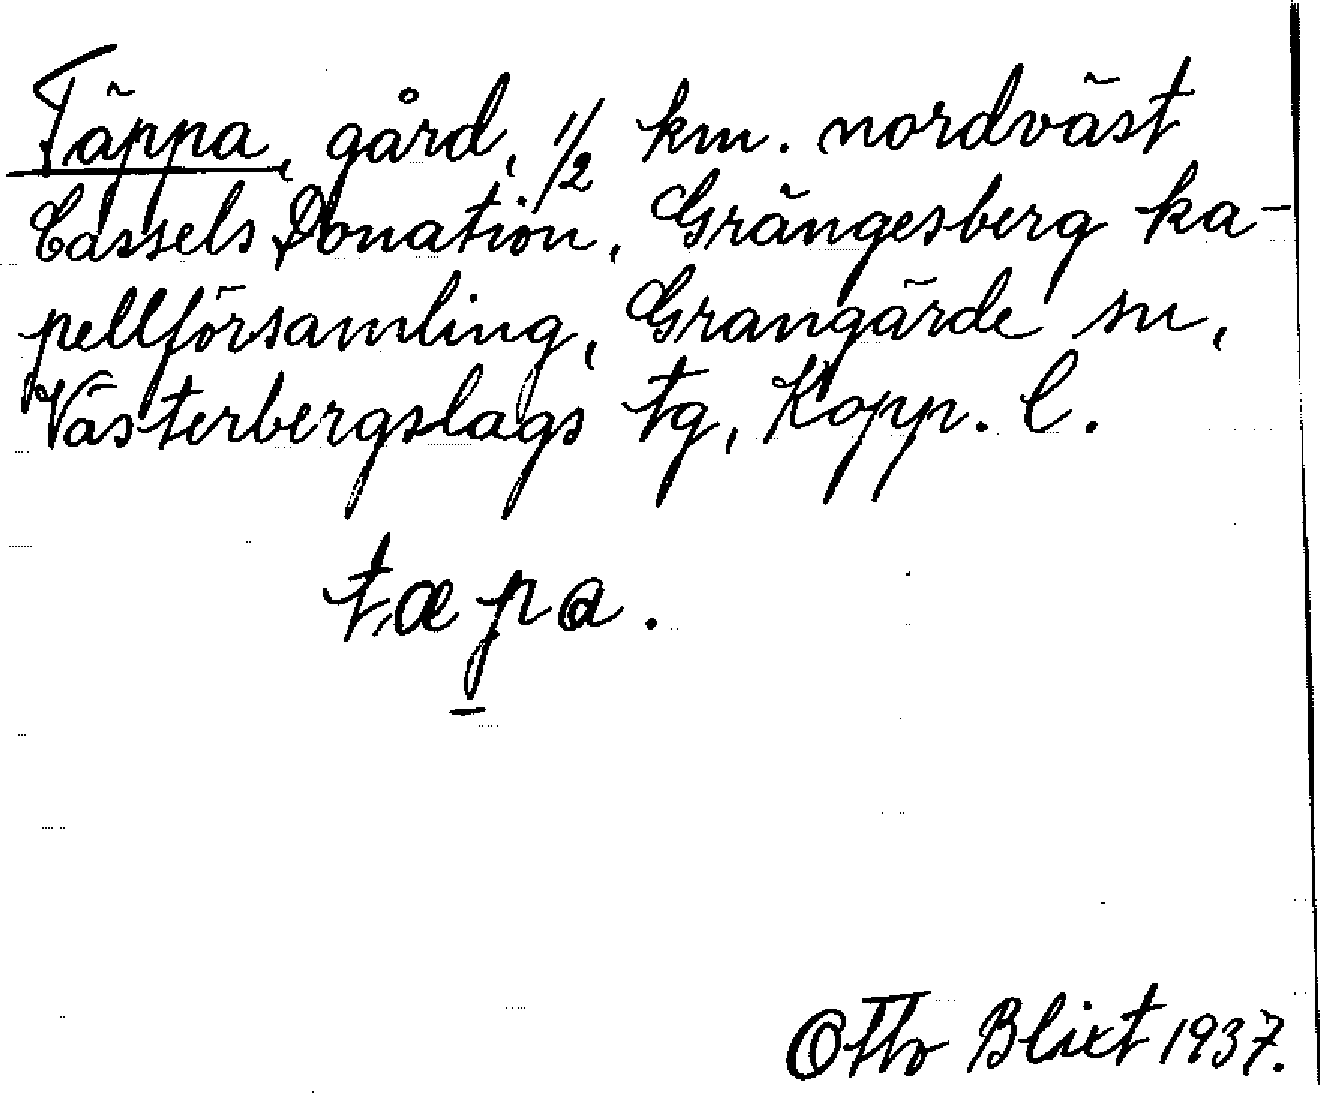 Täppa, gård, 1/2 km. nordväst
Cassels Donation, Grängesberg ka-
pellförsamling, Grangärde sn,
Västerbergslags tg, Kopp. l.
tæp̱a.
Otto Blixt 1937.